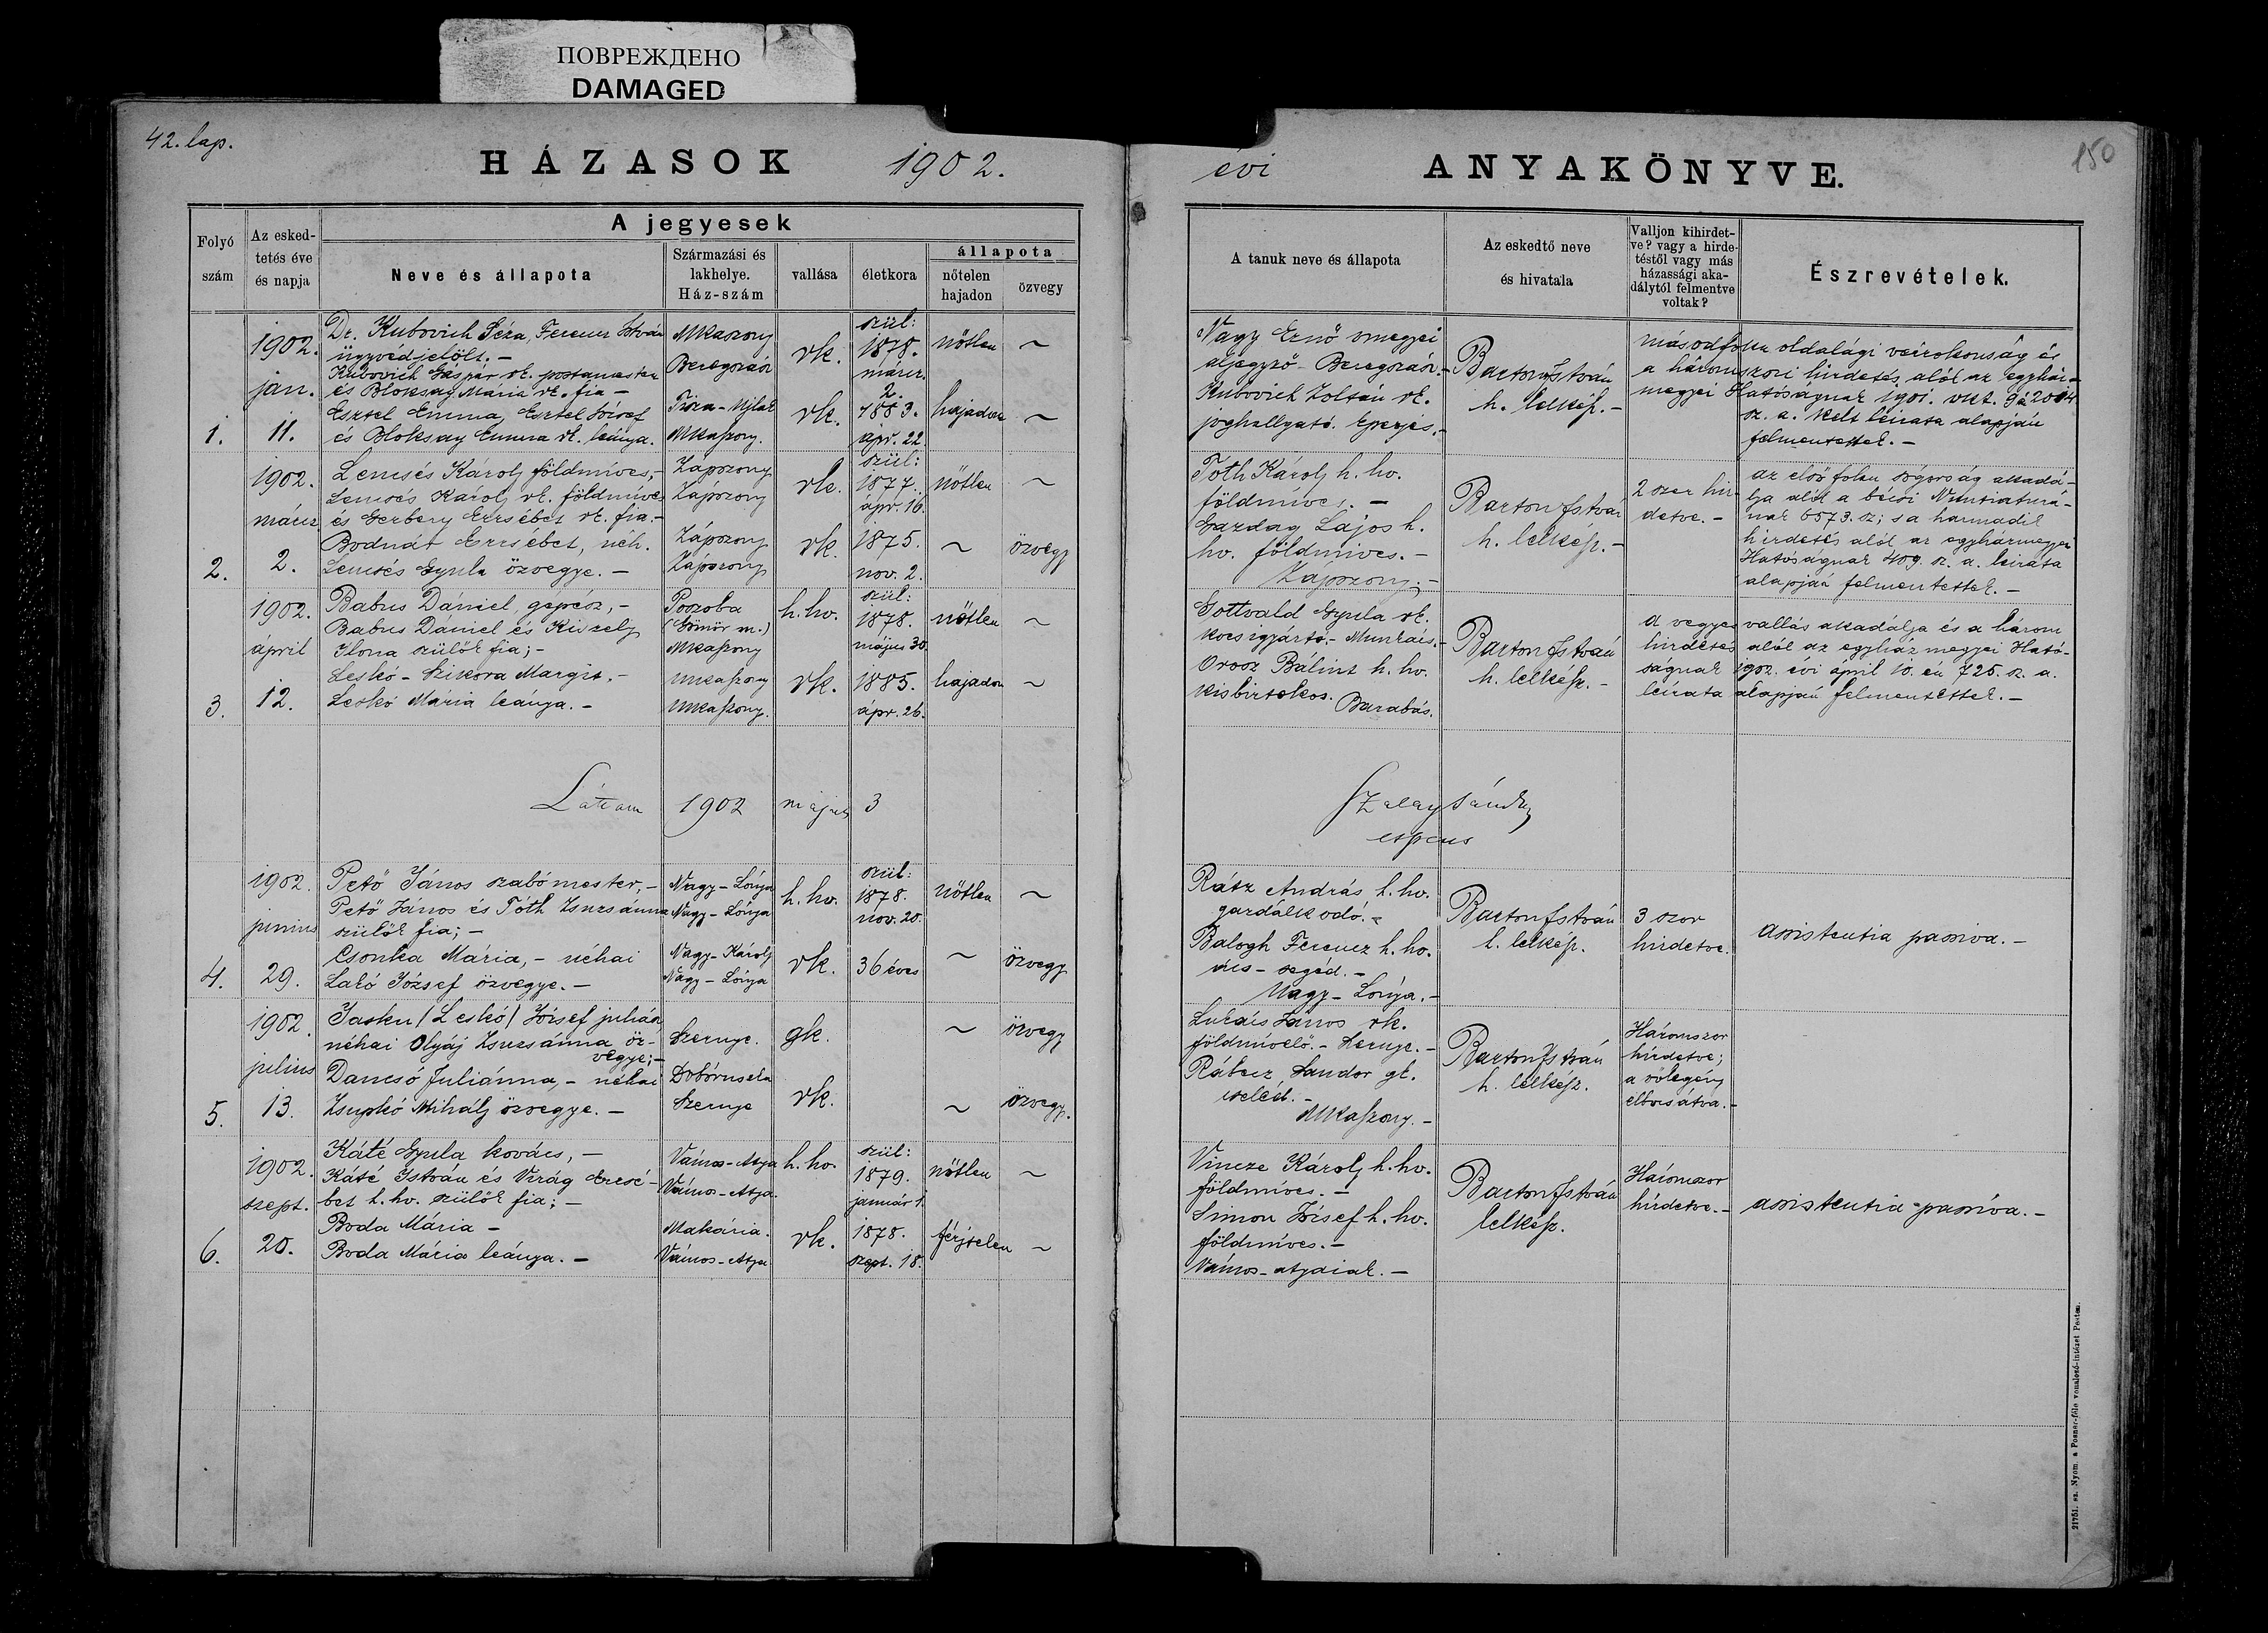 ПОВРЕЖДЕНО
DAMAGED
42. lap.
HÁZASOK 1902.
évi ANYAKÖNYVE.
150
Folyó szám
Az esked-
tetés éve
és napja
A jegyesek
Neve és állapota
Származási és
lakhelye.
Ház-szám
vallása
életkora
állapota
nőtelen
hajadon
özvegy
A tanuk neve és állapota
Az eskedtő neve
és hivatala
Valljon kihirdet-
ve? vagy a hirde-
téstől vagy más
házassági aka-
dálytól felmentve
voltak?
Észrevételek.
1.
1902.
jan.
11.
Dr. Kubovich Géza, Ferencz István
ügyvédjelölt. –
Kubovich Gáspár rk. postamester
és Bloksay Mária rk. fia –
Esztel Emma, Esztel József
és Bloksay Emma rk. leánya.
Mkaszony
Beregszász
Tisza-Ujlak
Mkaszony.
rk.
rk.
szül:
1878.
márcz.
2.
1883.
ápr. 22.
nőtlen ~
hajadon ~
Nagy Ernő vmegyei
aljegyző – Beregszász. –
Kubovich Zoltán rk.
joghallgató. Eperjes. –
Barton István
h. lelkész. –
másodfoku oldalági vérrokonság és
a háromszori hirdetés alól az egyház-
megyei Hatóságnak 1901. okt. 9 én 2004
sz. a. kelt leirata alapján
felmentettek. –
2.
1902.
márcz
2.
Lencsés Károly földmíves, –
Lencsés Károly rk. földmíves
és Gerbery Erzsébet rk. fia. –
Bodnár Erzsébet, néh.
Lencsés Gyula özvegye. –
Zápszony
Zápszony
Zápszony
Zápszony
rk.
rk.
szül:
1877.
ápr. 16.
1875.
nov. 2.
nőtlen ~
~ özvegy
Tóth Károly h. hv.
földmíves. –
Gazdag Lajos h.
hv. földmíves. –
Zápszony. –
Barton István
h. lelkész. –
2 szer hir-
detve. –
az első foku sógorság akadá-
lya alól a bécsi Nuntiaturá-
nak 6573. sz; s a harmadik
hirdetés alól az egyházmegyei
Hatóságnak 409. sz. a. leirata
alapján felmentettek. –
3.
1902.
ápril
12.
Babus Dániel, gépész, –
Babus Dániel és Kiszely
Ilona szülők fia; –
Leskó – Szikora Margit. –
Leskó Mária leánya. –
Poszoba
(Gömör m.)
Mkaszony
Mkaszony
Mkaszony.
h. hv.
rk.
szül:
1878.
május 30.
1885.
ápr. 26.
nőtlen ~
hajadon ~
Gottvald Gyula rk.
kocsigyártó. – Munkács. –
Orosz Bálint h. hv.
kisbirtokos. Barabás.
Barton István
h. lelkész. –
a vegyes vallás akadálya és a három
hirdetés alól az egyház megyei Ható-
ságnak 1902. évi ápril 10. én 725. sz. a.
leirata alapján felmentettek. –
Láttam 1902 május 3
Szalay Sándor
esperes
4.
1902.
junius
29.
Pető János szabómester, –
Pető János és Tóth Zsuzsánna
szülők fia; –
Csonka Mária, – néhai
Lakó József özvegye. –
Nagy-Lónya
Nagy-Lónya
Nagy-Károly
Nagy-Lónya
h. hv.
rk.
szül:
1878.
nov. 20.
36 éves
nőtlen ~
~ özvegy
Rátz András h. hv.
gazdálkodó. –
Balogh Ferencz h. hv.
ács-segéd. –
Nagy-Lónya. –
Barton István
h. lelkész.
3 szor
hirdetve.
assistentia passiva. –
5.
1902.
julius
13.
Jasku /Leskó/ József julián,
néhai Olyáj Zsuzsánna öz-
vegye; –
Dancsó Juliánna, – néhai
Zsupkó Mihály özvegye. –
Szernye.
Dobóruszka
Szernye
gk.
rk.
~ özvegy
~ özvegy.
Lukács János rk.
földművelő. – Szernye. –
Rákecz Sandor gk.
cseléd. –
Mkaszony. –
Barton István
h. lelkész.
Háromszor
hirdetve;
a völegény
elbocsátva. –
6.
1902.
szept.
20.
Káté Gyula kovács, –
Káté István és Virág Erzsé-
bet h. hv. szülők fia; –
Boda Mária –
Boda Mária leánya. –
Vámos-Atya
Vámos-Atya.
Makária.
Vámos-Atya
h. hv.
rk.
szül:
1879.
január 1.
1878.
szept. 18.
nőtlen ~
férjtelen ~
Vincze Károly h. hv.
földmíves. –
Simon József h. hv.
földmíves. –
Vámos-atyaiak. –
Barton István
lelkész.
Háromszor
hirdetve. –
assistentia passiva. –
21751. sz. Nyom. a Posner-féle vonalozó-intézet Pesten.